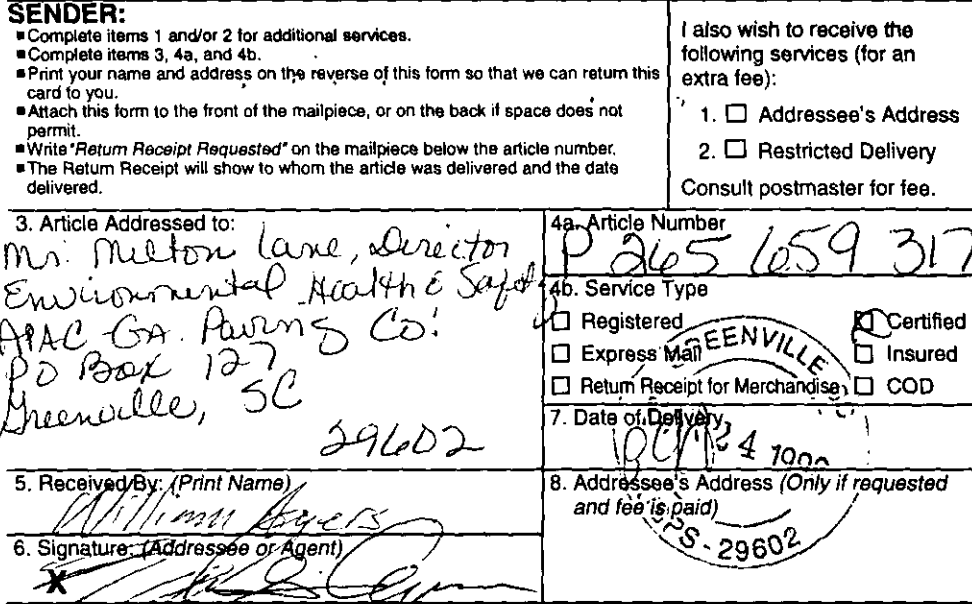 SENDER:
■Complete items 1 and/or 2 for additional services.
■Complete items 3, 4a, and 4b.
■Print your name and address on the reverse of this form so that we can return this
card to you.
■Attach this form to the front of the mailpiece, or on the back if space does not
permit.
■Write "Return Receipt Requested" on the mailpiece below the article number.
■The Return Receipt will show to whom the article was delivered and the date
delivered.
I also wish to receive the
following services (for an
extra fee):
1. ☐ Addressee's Address
2. ☐ Restricted Delivery
Consult postmaster for fee.
3. Article Addressed to:
Mr. Milton Lane, Director
Environmental Health & Safety
APAC-GA. Paving Co.
PO Box 127
Greenville, SC
29602
4a. Article Number
P 265 659 317
4b. Service Type
☐ Registered
☒ Certified
☐ Express Mail
☐ Insured
☐ Return Receipt for Merchandise
☐ COD
7. Date of Delivery
24
GREENVILLE
USPS - 29602
5. Received By: (Print Name)
William Ayers
8. Addressee's Address (Only if requested
and fee is paid)
6. Signature: (Addressee or Agent)
X